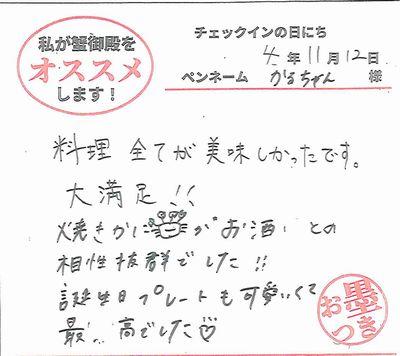 私が蟹御殿を
オススメ
します！
チェックインの日にち
4年 11月 12日
ペンネーム かるちゃん 様
料理 全てが美味しかったです。
大満足!!
焼きかにがお酒との
相性抜群でした!!
誕生日プレートも可愛いくて
最...高でした♡
お墨つき